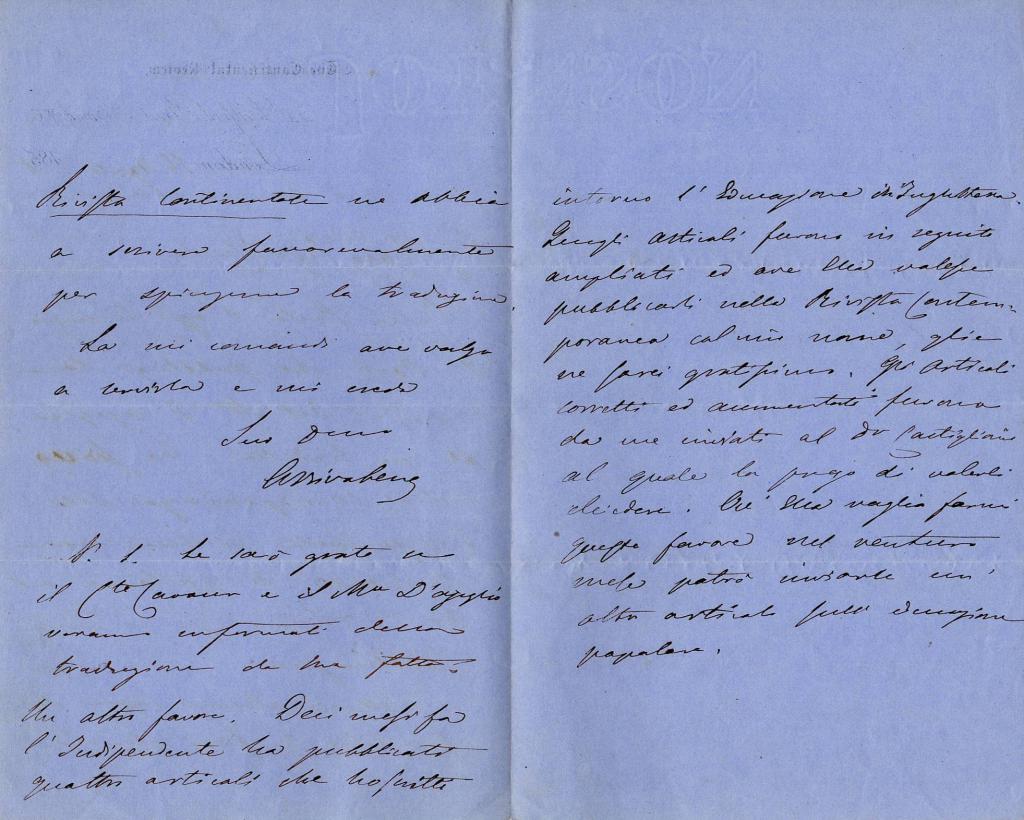 Rivista Continentale ne abbia
a scrivere favorevolmente
per spingerne la traduzione.
La mi comandi ove valga
a servirla e mi creda
Suo Devo
Arrivabene
P. S. Le sarò grato se
il Cte Cavour e il Mse D'azeglio
verranno informati della
traduzione da me fatta.
Un altro favore. Dieci mesi fa
l'Indipendente ha pubblicato
quattro articoli che ho scritto
intorno l'Educazione in Inghilterra.
Quegli articoli furono in seguito
ampliati ed ove Ella volesse
pubblicarli nella Rivista Contem-
poranea col mio nome, glie
ne sarei gratissimo. Gli Articoli
corretti ed aumentati furono
da me inviati al Dr Castiglioni
al quale la prego di volerli
chiedere. Ove Ella voglia farmi
questo favore nel venturo
mese potrò inviarle un'
altro articolo sull' educazione
popolare.
The Continental Review
London